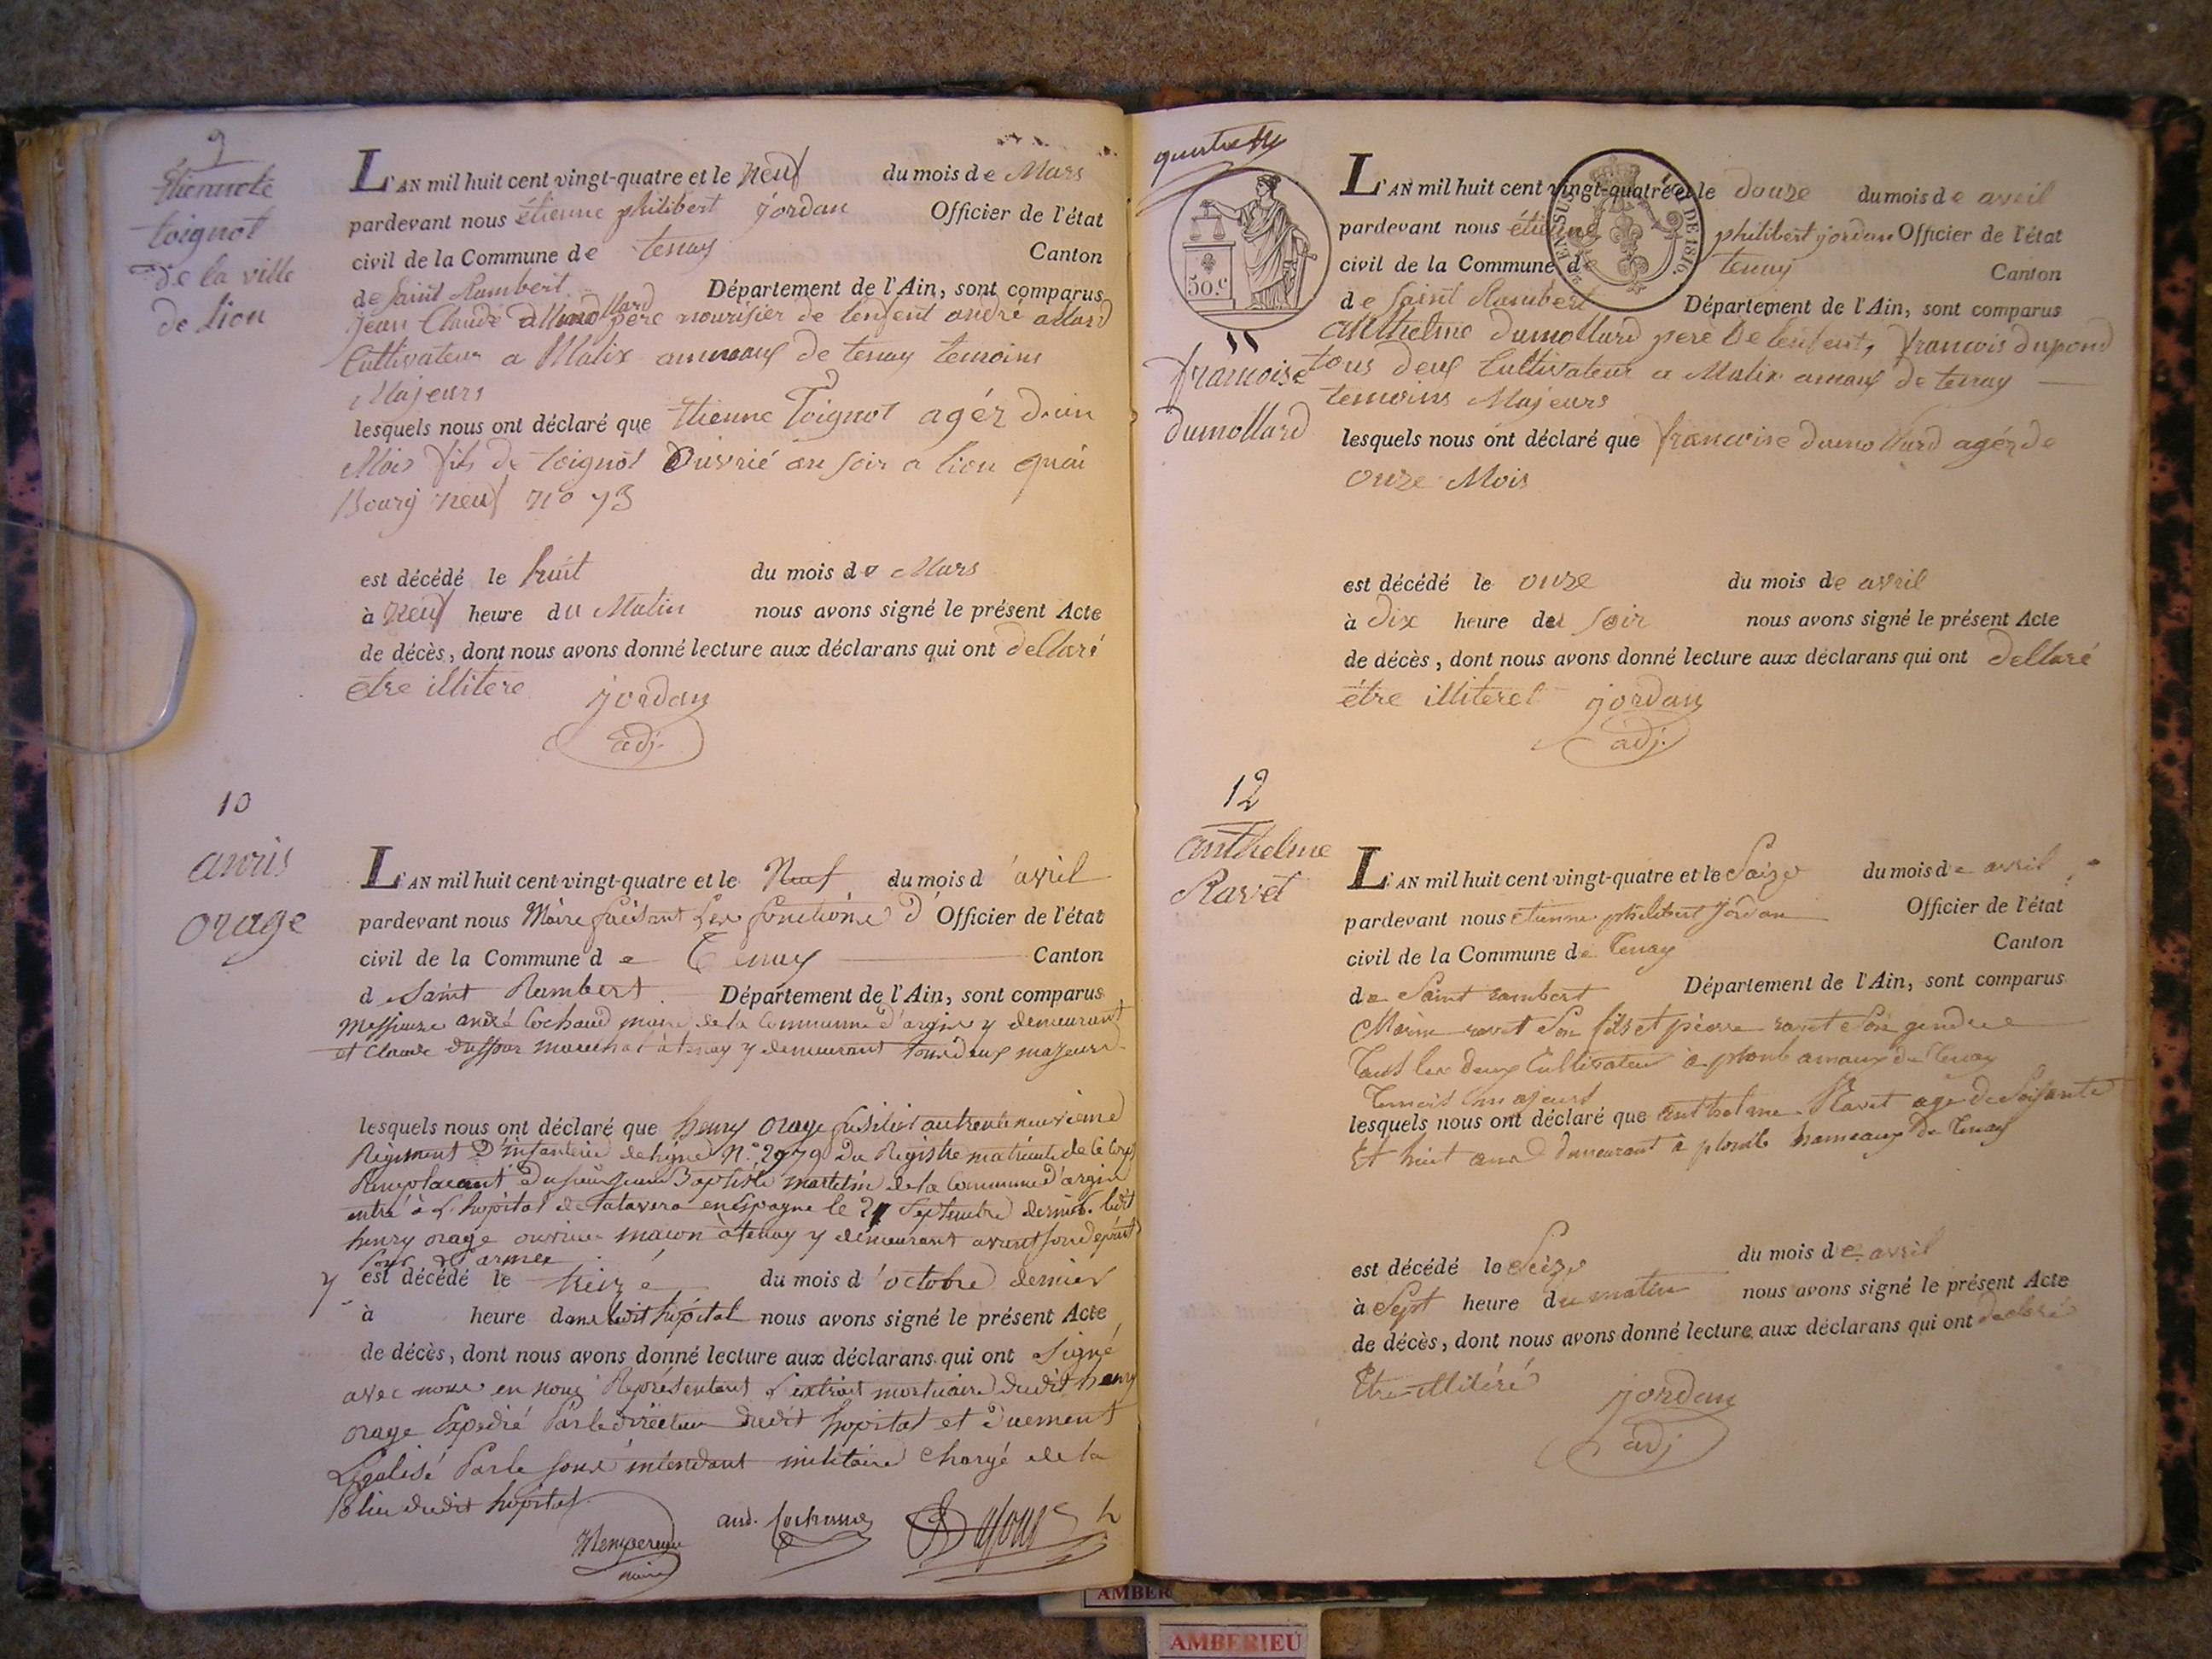 9
Étienne
toignot
de la ville
de lion
L'AN mil huit cent vingt-quatre et le neuf du mois de Mars
pardevant nous étienne philibert jordan Officier de l'état
civil de la Commune de tenay Canton
de Saint Rambert Département de l'Ain, sont comparus
jean Claude dumollard père nourisier de lenfent andré allard
Cultivateur a Malix ameaux de tenay temoins
Majeurs
lesquels nous ont déclaré que Etienne Toignot agéz dun
Mois fils de toignot Ouvrié an soir a lion quai
Bourg neuf no 73
est décédé le huit du mois de Mars
à neuf heure du Matin nous avons signé le présent Acte
de décès, dont nous avons donné lecture aux déclarans qui ont dellaré
être illitere
jordan
adj.
10
orage
L'AN mil huit cent vingt-quatre et le Neuf du mois d'avril
pardevant nous Maire faisant les fonctions d'Officier de l'état
civil de la Commune de Tenay Canton
de Saint Rambert Département de l'Ain, sont comparus
Messieurs andré Cochaud maire de la Commune d'argis y demeurant
et Claude marechal à tenay y demeurant tous deux majeurs
lesquels nous ont déclaré que henry orage fusilier au trente neuvieme
Regiment D'infanterie de ligne N° 2979 Du Registre matricule de ce Corps
Remplacant Du sieur jean Baptiste martelin de la Commune d'argis
entré à L'hopital de talavera en Espagne le 21 Septembre dernier ledit
henry orage ouvrier macon à tenay y demeurant avant son depart
Pour L'armee
y est décédé le treize du mois d'octobre dernier
à heure dans ledit hôpital nous avons signé le présent Acte
de décès, dont nous avons donné lecture aux déclarans qui ont signé
avec nous en nous Représentant L'extrait mortuaire dudit henry
orage Expedié Par le directeur dudit hopital et duement
Légalisé Par le sous intendant militaire chargé de la
Police dudit hopital
maire
and. Cochaud
L'AN mil huit cent vingt-quatre et le douze du mois de avril
pardevant nous étienne philibert jordan Officier de l'état
civil de la Commune de tenay Canton
de Saint Rambert Département de l'Ain, sont comparus
anthelme dumollard pere De lenfent, francois dupond
tous deux Cultivateur a Malix amaux de tenay
temoins Majeurs
lesquels nous ont déclaré que francoise dumollard agéz de
onze Mois
50.c
11
francoise
dumollard
EN SUS LOI DE 1816.
est décédé le onze du mois de avril
à dix heure du soir nous avons signé le présent Acte
de décès, dont nous avons donné lecture aux déclarans qui ont dellaré
être illiteret
jordan
adj.
12
anthelme
Ravet
L'AN mil huit cent vingt-quatre et le Saize du mois de avril
pardevant nous etienne philibert jordan Officier de l'état
civil de la Commune de Tenay Canton
de Saint rambert Département de l'Ain, sont comparus
ravet son fils et pierre ravet son gendre
Tous les deux Cultivateur à plomb amaux de Tenay
Temoin majeurs
lesquels nous ont déclaré que anthelme Ravet age de Soisante
Et huit ans demeurant à plomb hameaux De Tenay
est décédé le Seize du mois de avril
à Sept heure du matin nous avons signé le présent Acte
de décès, dont nous avons donné lecture aux déclarans qui ont declaré
Etre illitéré
jordan
adj
AMBER
AMBERIEU